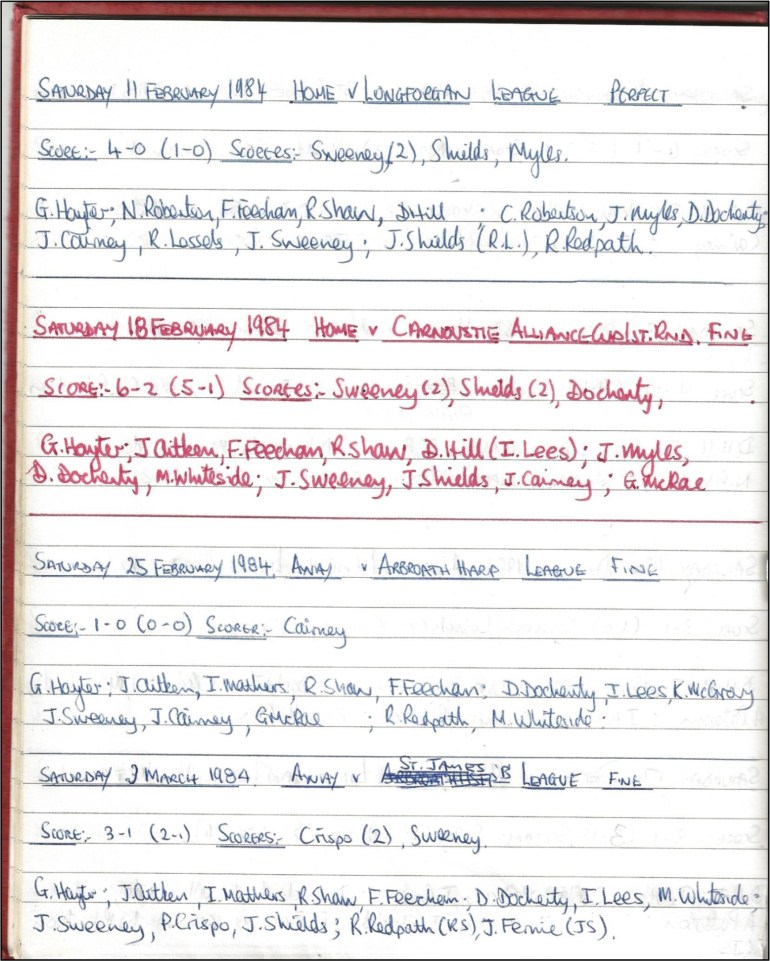 SATURDAY 11 FEBRUARY 1984 HOME v LONGFORGAN LEAGUE PERFECT
SCORE:- 4-0 (1-0) SCORERS:- Sweeney (2), Shields, Myles.
G. Hayter; N. Robertson, F. Feechan, R. Shaw, D Hill ; C. Robertson, J. Myles, D. Docherty;
J. Cairney, R. Lossels, J. Sweeney; J. Shields (R.L.), R. Redpath.
SATURDAY 18 FEBRUARY 1984 HOME v CARNOUSTIE ALLIANCE-CUP 1ST. RND. FINE
SCORE:- 6-2 (5-1) SCORERS:- Sweeney (2), Shields (2), Docherty,
G. Hayter; J Aitken, F. Feechan, R Shaw, D. Hill (I. Lees); J. Myles,
D. Docherty, M. Whiteside; J. Sweeney, J. Shields, J. Cairney; G. McRae
SATURDAY 25 FEBRUARY 1984, AWAY v ARBROATH HARP LEAGUE FINE
SCORE:- 1-0 (0-0) SCORER:- Cairney
G. Hayter; J. Aitken, I. Mathers, R. Shaw, F. Feechan; D. Docherty, I. Lees, K. McGrory
J. Sweeney, J. Cairney, G McRae ; R. Redpath, M. Whiteside.
SATURDAY 3 MARCH 1984. AWAY v ST. JAMES B LEAGUE FINE
SCORE:- 3-1 (2-1) SCORERS:- Crispo (2), Sweeney.
G. Hayter; J. Aitken, I. Mathers R. Shaw, F. Feechan; D. Docherty, I. Lees, M. Whiteside;
J. Sweeney, P. Crispo, J. Shields; R. Redpath (RS), J. Fernie (JS).